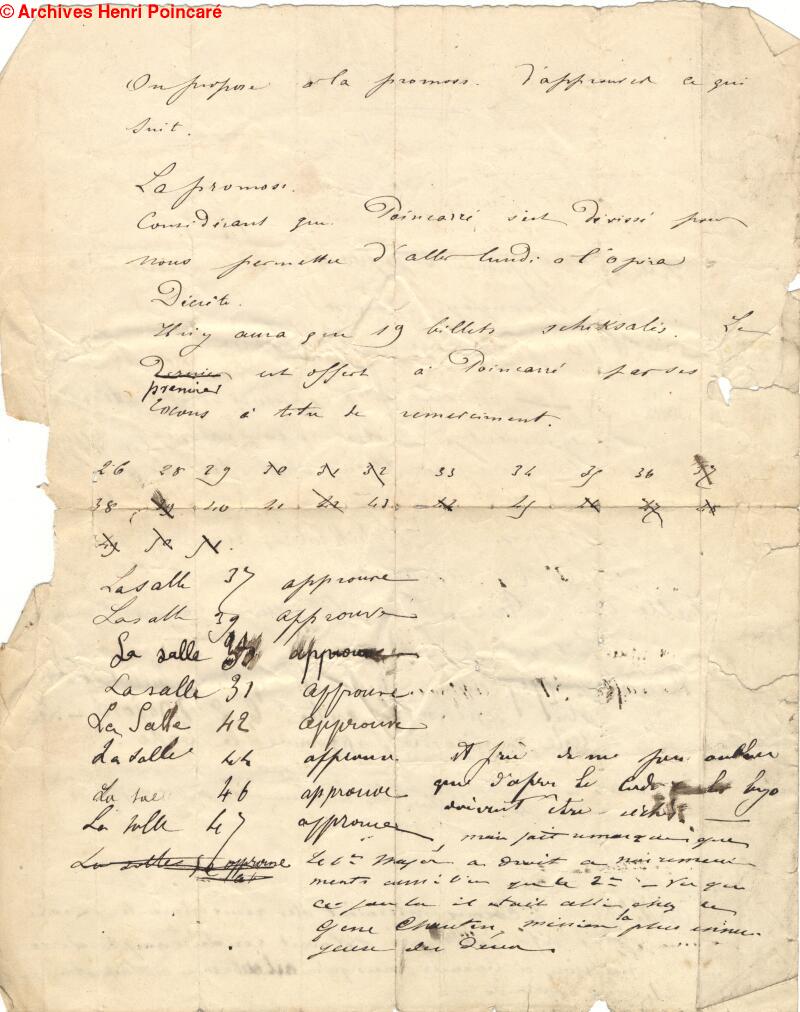 © Archives Henri Poincaré
On propose à la promoss. d'approuver ce qui
suit.
La promoss.
Considérant que Poincarré s'est dévissé pour
nous permettre d'aller lundi à l'opéra
Décrète.
Il n'y aura que 19 billets schiksalés. Le
Dernier
premier est offert à Poincarré par ses
Cocons à titre de remerciment.
26 28 29 30 31 32 33 34 35 36 37
38 39 40 41 42 43 44 45 46 47 48
49 50 51.
La salle 37 approuve
La salle 39 approuve
La salle approuve
La salle 31 approuve
La Salle 42 approuve
La salle 44 approuve et prie de ne pas oublier
La sal 46 approuve que d'après le Code les
La salle 47 approuve doivent être
La salle approuve mais fait remarquer que
le 1er Major a droit à
ments aussi bien que le 2me – Vu que
ce jour là il était allé chez le
Gene mission la plus
geuse des Deux